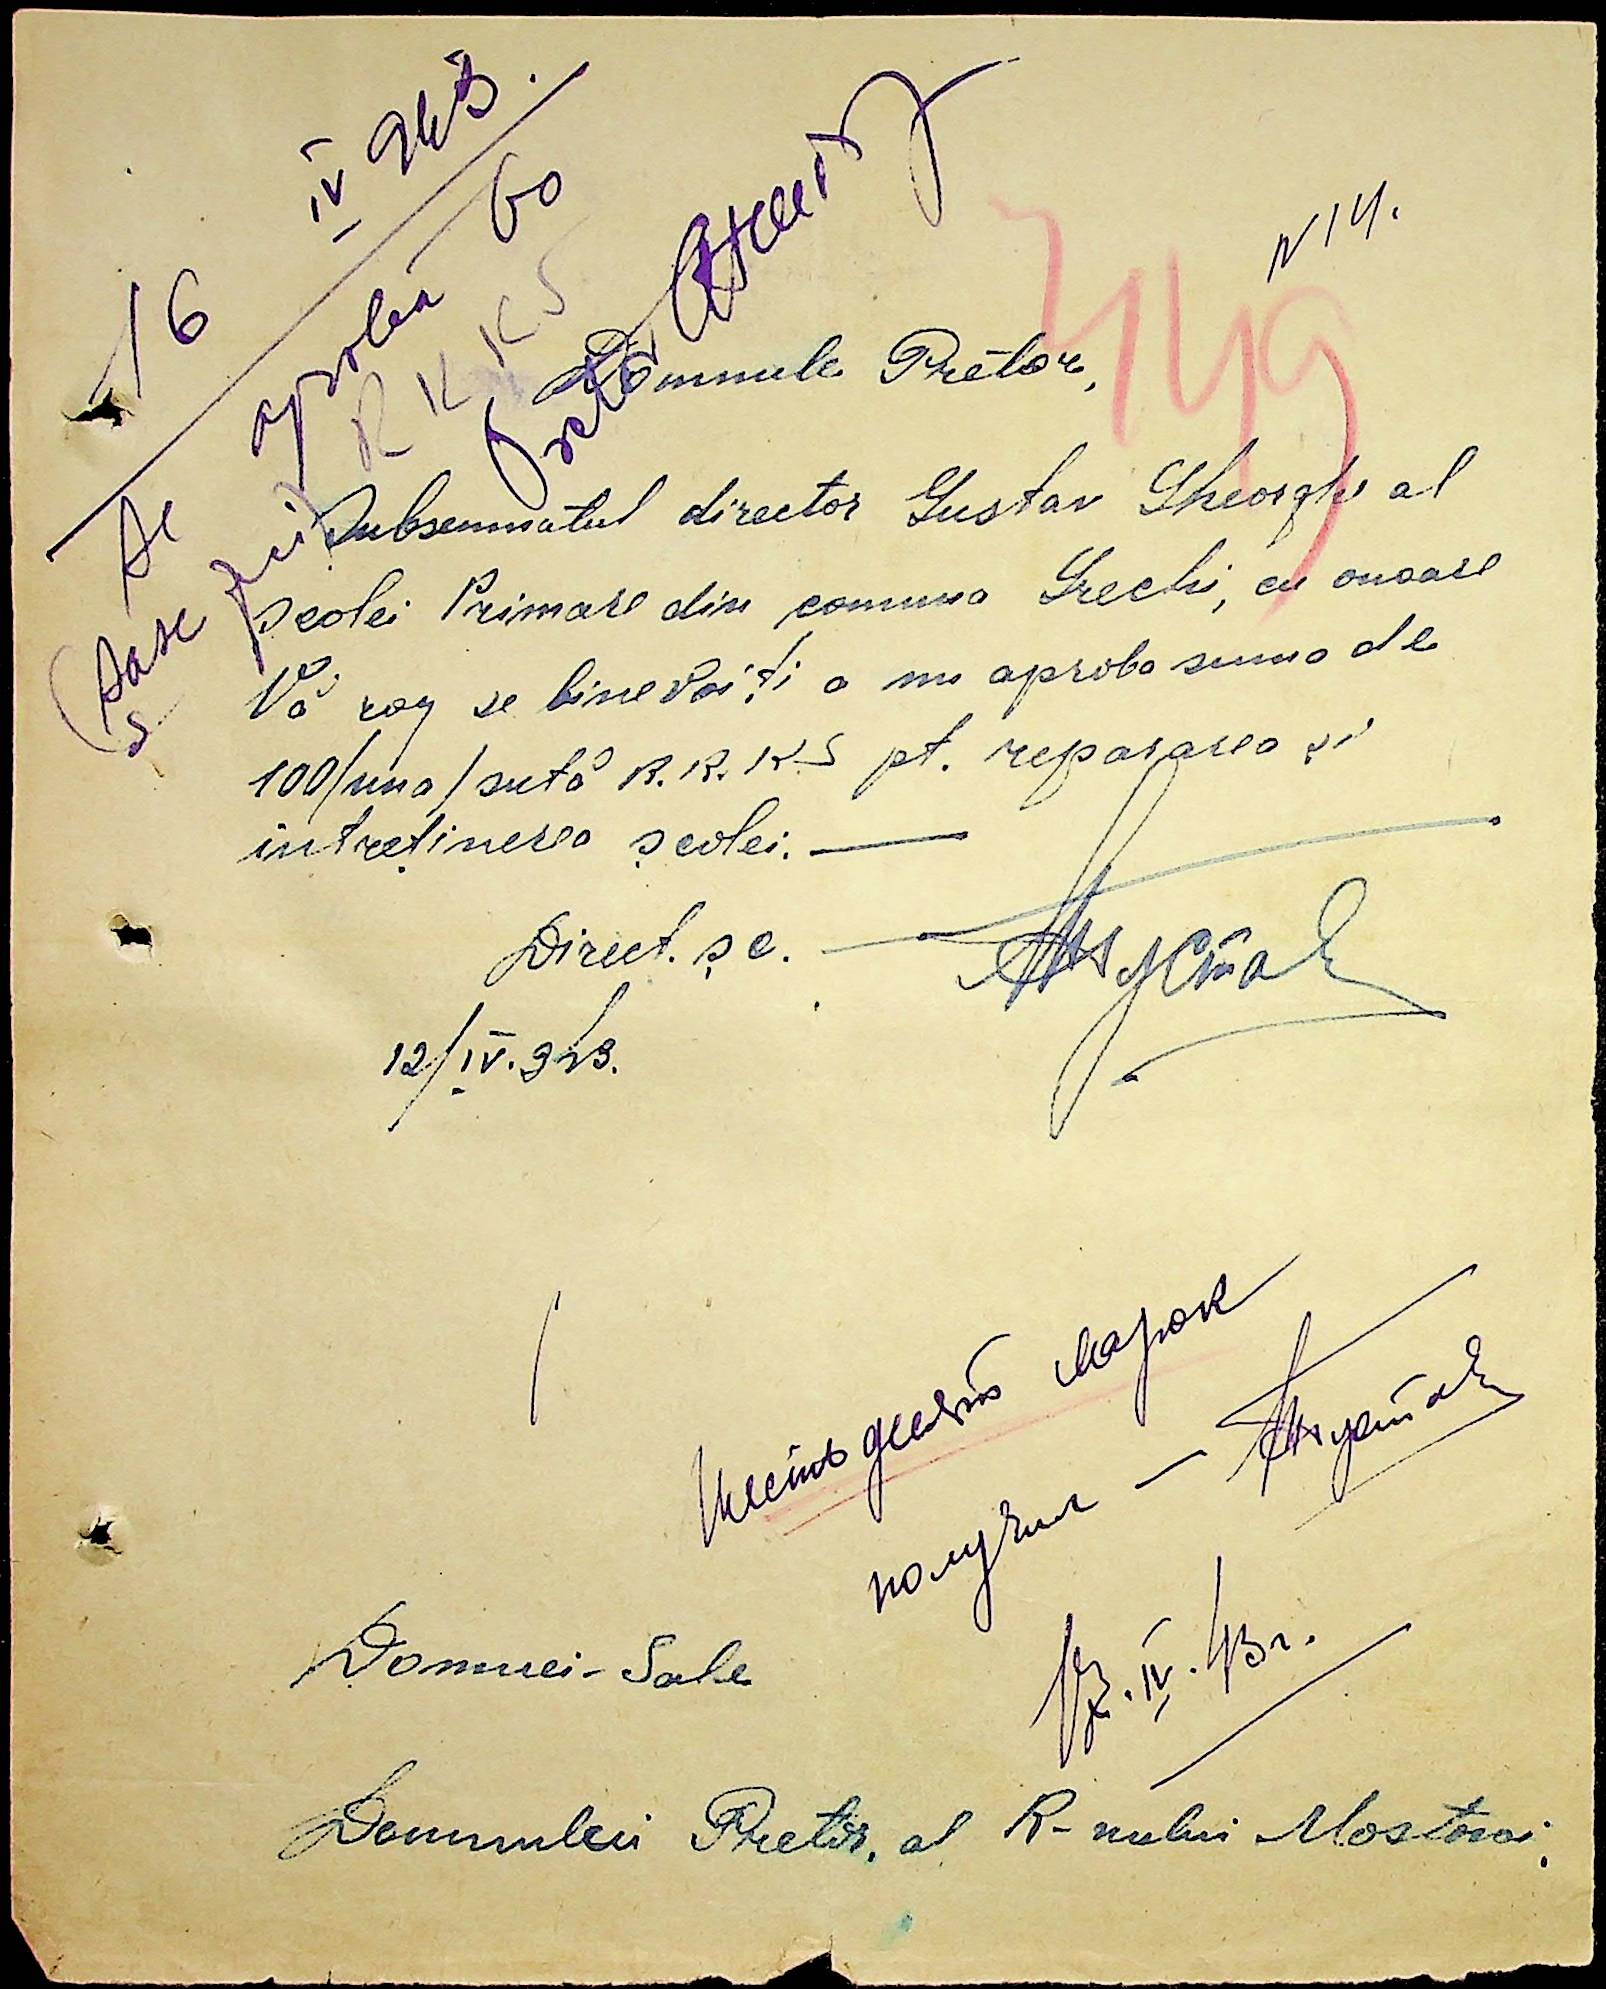 16 IV 943.
Se aprobă 60
(șase zeci
R K K S
Pretor
N 14.
449
Domnule Pretor,
Subsemnatul director Gustav Gheorghe al
școlei Primare din comuna Grechi, cu onoare
Vă rog se binevoiți a mi aproba suma de
100/una/sută R.K.K.S pt. repararea și
intreținerea școlei. —
Direct. șc. — Густав
12/IV.943.
Шестьдесят марок
получил — Густав
17.IV.43 г.
Domniei-Sale
Domnului Pretor. al R-nului Mostovoi.